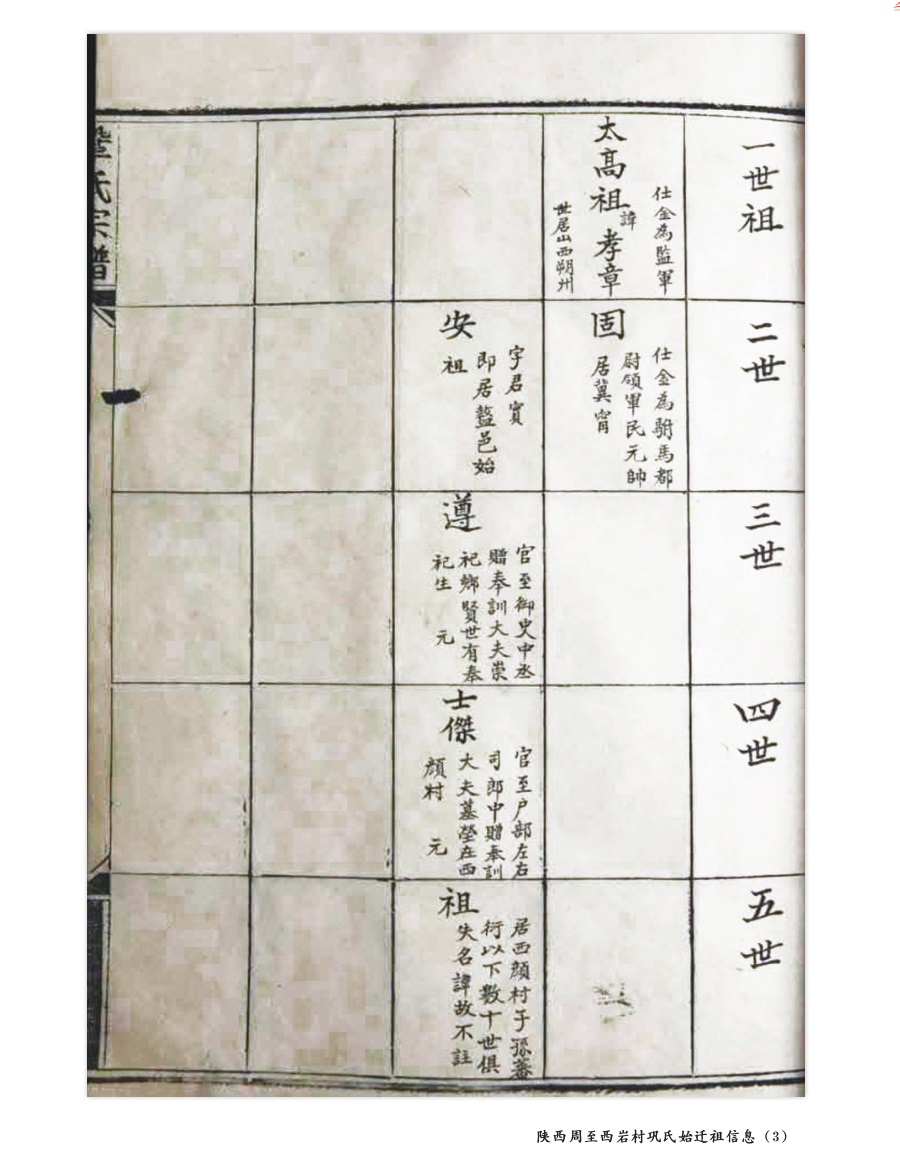 一世祖
太高祖諱孝章
仕金為監軍
世居山西朔州
二世
固
仕金為駙馬都
尉領軍民元帥
居冀甯
安
字君實
即居盩邑始
祖
三世
遵
官至御史中丞
贈奉訓大夫崇
祀鄉賢世有奉
祀生 元
四世
士傑
官至户部左右
司郎中贈奉訓
大夫墓塋在西
顏村 元
五世
祖
居西顏村子孫蕃
衍以下數十世俱
失名諱故不註
鞏氏宗譜
陕西周至西岩村巩氏始迁祖信息（3）